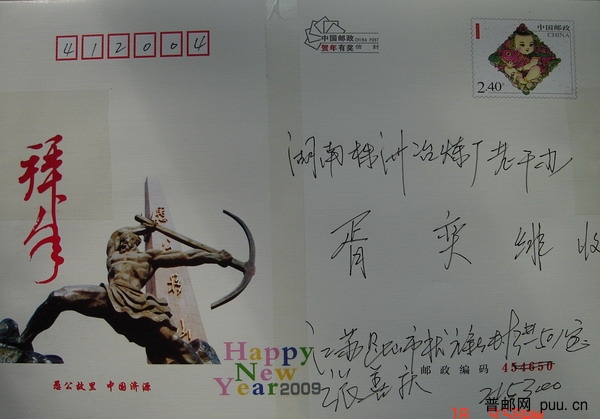 412004
中国邮政 CHINA POST
贺年有奖 信封
中国邮政
CHINA
2.40元
湖南株洲冶炼厂老干办
拜年
愚公移山
胥 奕 收
江苏昆山市
Happy
New
Year 2009
愚公故里 中国济源
邮政编码 454650
215300
普邮网 puu.cn